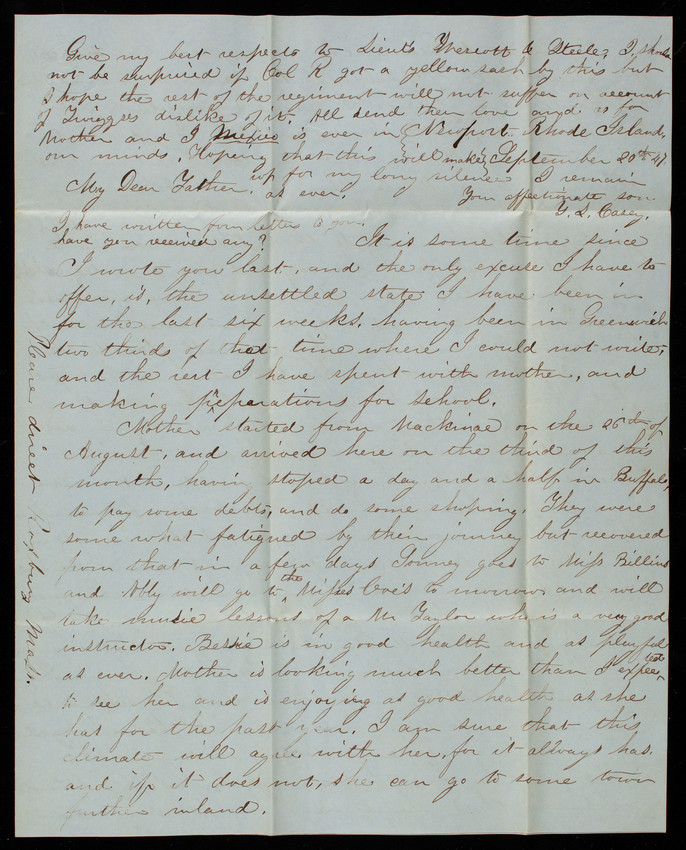 Give my best respects to Lieuts Wescott & Steele; I should
not be surprised if Col R got a yellow sash by this but
I hope the rest of the regiment will not suffer on account
of Twiggses dislike of it. All send their love and as for
Mother and I Mexico is ever in
our minds. Hoping that this will make
up for my long silence I remain
as ever. Your affectionate son.
T. L. Casey.
Newport. Rhode Island,
September 20th 47
My Dear Father.
I have written four letters to you.
have you received any?
It is some time since
I wrote you last, and the only excuse I have to
offer, is, the unsettled state I have been in
for the last six weeks, having been in Greenwich
two thirds of that time where I could not write;
and the rest I have spent with mother, and
making preparations for school.
Mother started from Mackinac on the 26th of
August, and arrived here on the third of this
month, having stoped a day and a half in Buffalo,
to pay some debts, and do some shoping. They were
some what fatigned by their journey but recovered
from that in a few days Tommey goes to Miss Billins
and Abby will go to the Misses to morrow and will
take music lessons of a Mr Taylor who is a very good
instructor. Bessie is in good health and as playful
as ever. Mother is looking much better than I expected
to see her and is enjoying as good health as she
has for the past year. I am sure that this
climate will agree with her, for it always has
and if it does not, she can go to some town
further inland.
Please direct Roxbury Mass.